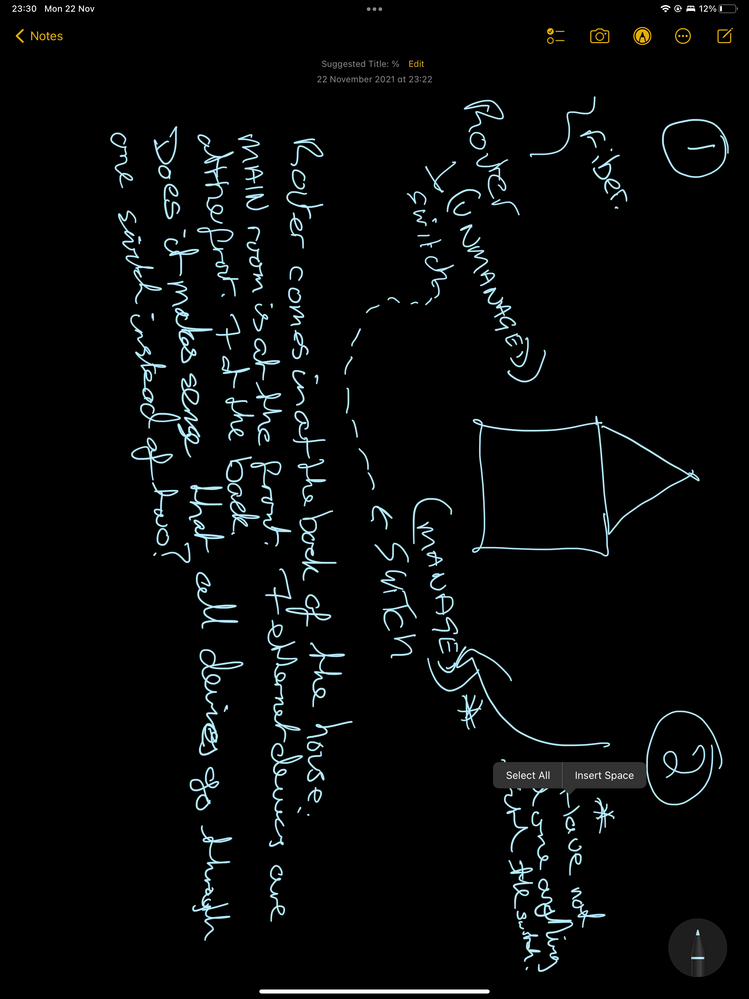 23:30 Mon 22 Nov
12%
Notes
Suggested Title: % Edit
22 November 2021 at 23:22
1
Fiber.
Router
(UNMANAGED)
switch
2
(MANAGED) *
← SWITCH
Select All
Insert Space
*
I have not
done anything
with the switch.
Router comes in at the back of the house.
MAIN room is at the front. 7 ethernet devices are
at the front. 7 at the back.
Does it makes sense that all devices go through
one switch instead of two?